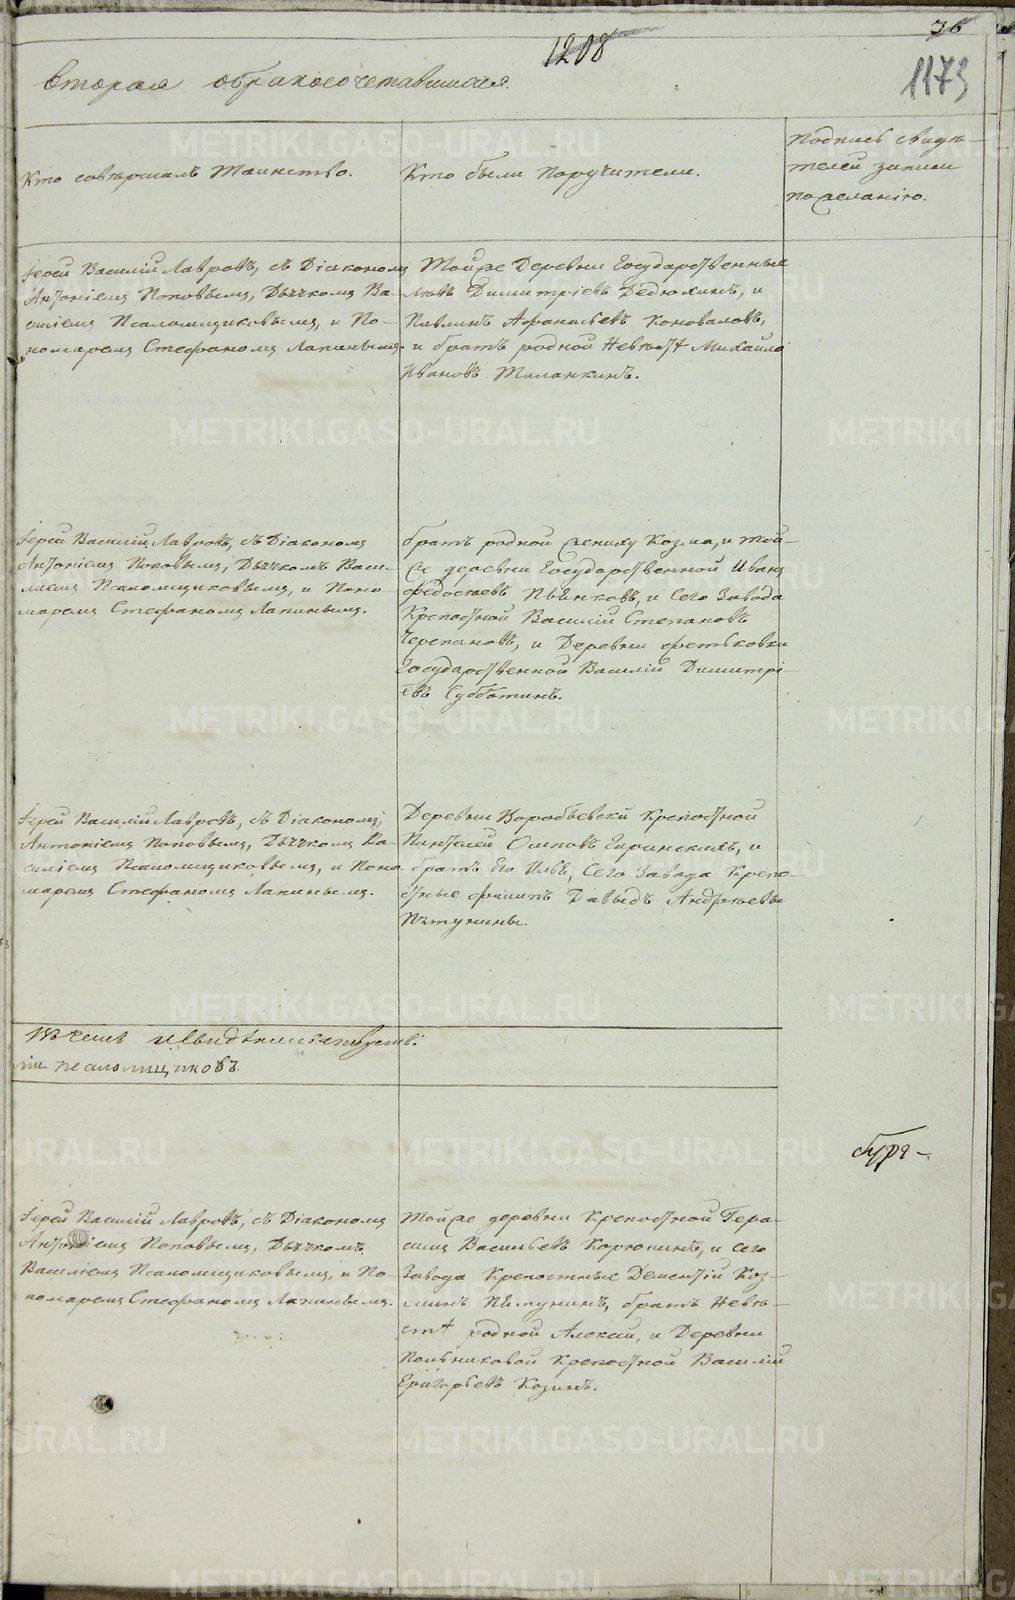 36
1208
1173
вторая о бракосочетавшихся.
Кто совершалъ Таинство.
Кто были Поручители.
Подпись свидѣ-
телей записи
по желанію.
Іерей Василій Лавровъ, съ Діакономъ
Антоніемъ Поповымъ, Дьячкомъ Ва-
силіемъ Псаломщиковымъ, и По-
номаремъ Стефаномъ Лапинымъ.
Тойже Деревни Государственные
Димитріевъ Дедюхинъ, и
Павлинъ Афанасьевъ Коноваловъ,
и братъ родной Невѣсты Михайло
Ивановъ Таланкинъ.
Іерей Василій Лавровъ, съ Діакономъ
Антоніемъ Поповымъ, Дьячкомъ Васи-
ліемъ Псаломщиковымъ, и Поно-
маремъ Стефаномъ Лапинымъ.
братъ родной жениху Козма, и той-
же деревни Государственной Иванъ
Федосѣевъ Пьянковъ, и Сего Завода
Крепостной Василій Степановъ
Черепановъ, и Деревни Фетьковки
Государственной Василій Димитрі-
евъ Субботинъ.
Іерей Василій Лавровъ, съ Діакономъ
Антоніемъ Поповымъ, Дьячкомъ Ва-
силіемъ Псаломщиковымъ, и Поно-
маремъ Стефаномъ Лапинымъ.
Деревни Воробьевской Крепостной
Пантелей Осиповъ Гаринскихъ, и
братъ Его Илья, Сего Завода Крепо-
стные Филипъ Давыдъ Андреевы
Пѣтунины.
Въ чемъ и свидѣтельствуемъ:
псаломщиковъ
Іерей Василій Лавровъ, съ Діакономъ
Антоніемъ Поповымъ, Дьячкомъ
Василіемъ Псаломщиковымъ, и По-
номаремъ Стефаномъ Лапинымъ.
Тойже деревни Крепостной Гера-
симъ Васильевъ Корюкинъ, и сего
Завода Крепостные Дементій Коз-
минъ Пѣтунинъ, братъ Невѣ-
сты родной Алексій, и Деревни
Полѣниковой Крепостной Василій
Григорьевъ Козинъ.
METRIKI.GASO-URAL.RU